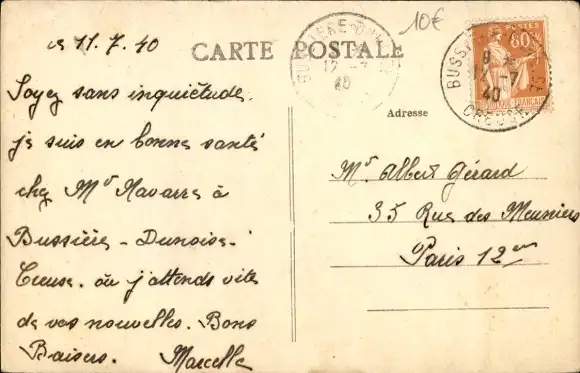 ce 11.7.40
10€
CARTE POSTALE
BUSSIÈRE-DUNOISE
12 -7
40
BUSSIÈRE
12 -7
40
CREUSE
POSTES
80c
Soyez sans inquiétude.
je suis en bonne santé
chez Mr Navarre à
Bussière - Dunoise.
Creuse. où j'attends vite
de vos nouvelles. Bons
Baisers. Marcelle
Adresse
Mr Albert Gérard
35 Rue des Meuniers
Paris 12em